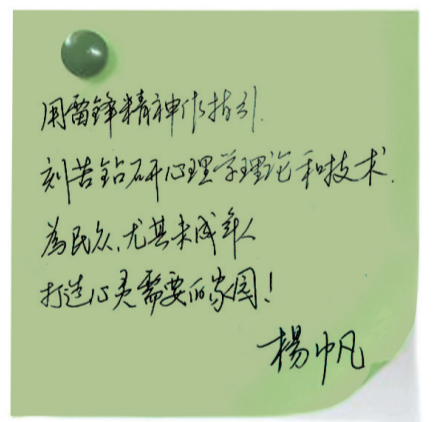 用雷锋精神作指引.
刻苦钻研心理学理论和技术.
為民众,尤其未成年人
打造心灵需要的家园!
楊中凡